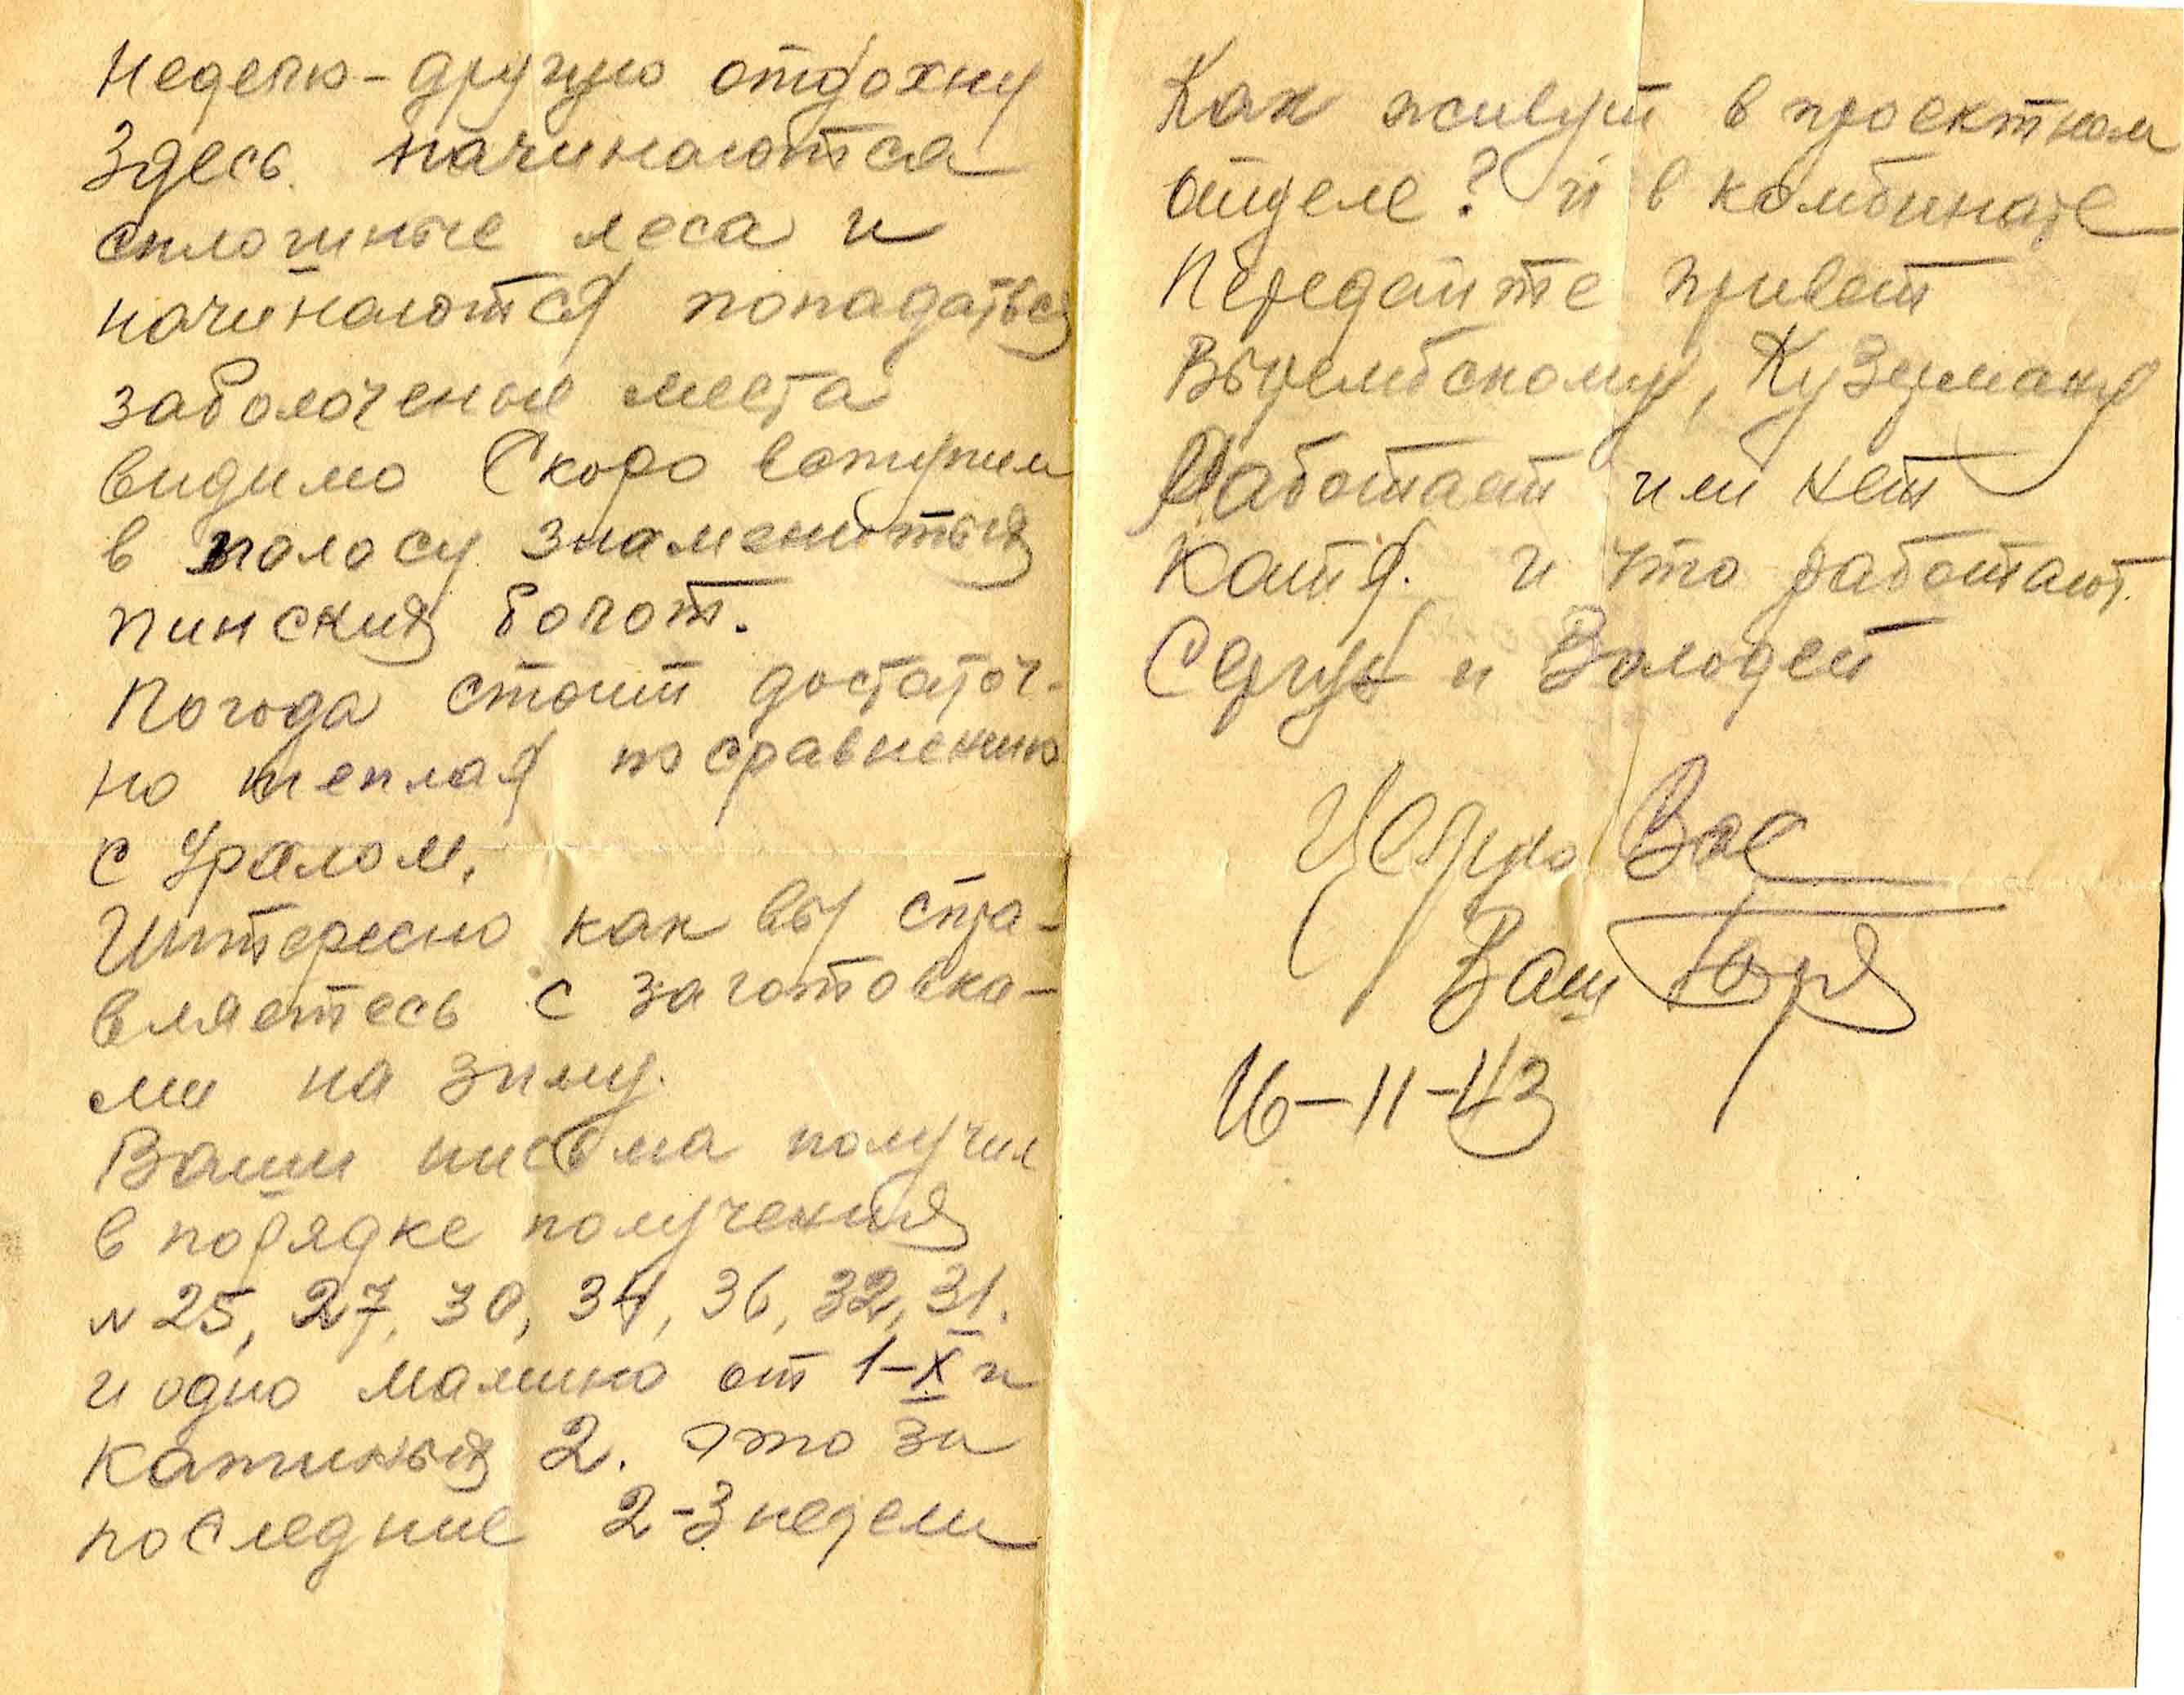 Неделю-другую отдохну
Здесь начинаются
сплошные леса и
начинаются попадаться
заболоченые места
видимо Скоро вступим
в полосу знаменитых
пинских болот.
Погода стоит достаточ-
но теплая по сравнению
с Уралом.
Интересно как вы спра-
вляетесь с заготовка-
ми на зиму.
Ваши письма получил
в порядке получения
N 25, 27, 30, 34, 36, 32, 31.
и одно мамино от 1-X и
Катиных 2. это за
последние 2-3 недели
Как живут в проектном
отделе? и в комбинате
Передайте привет
Кузерману
Работает или нет
Катя. и что работают
Сергей и Володей
Целую Вас
Ваш Юра
16-11-43